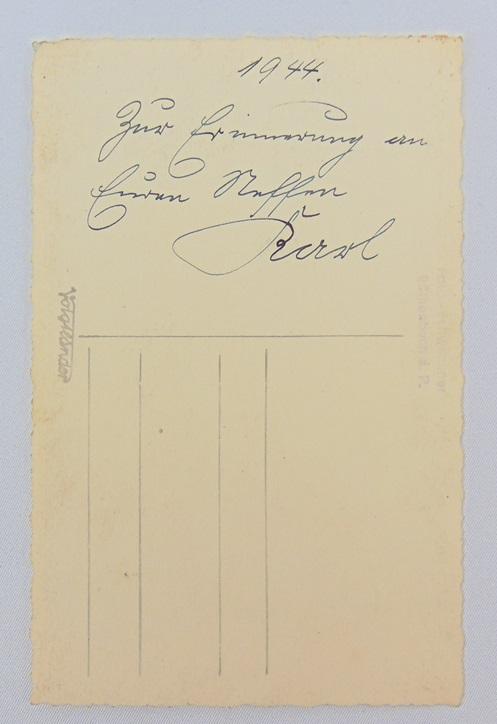 1944.
Zur Erinnerung an
Euren Neffen
Karl
Voigtländer